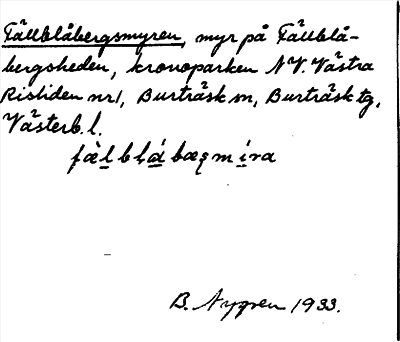 Fällblåbergsmyren, myr på Fällblå-
bergsheden, kronoparken N.V. Västra
Risliden nr 1, Burträsk sn, Burträsk tg,
Västerb. l.
fæ̀l blá bæȩm íra
B. Nygren 1933.